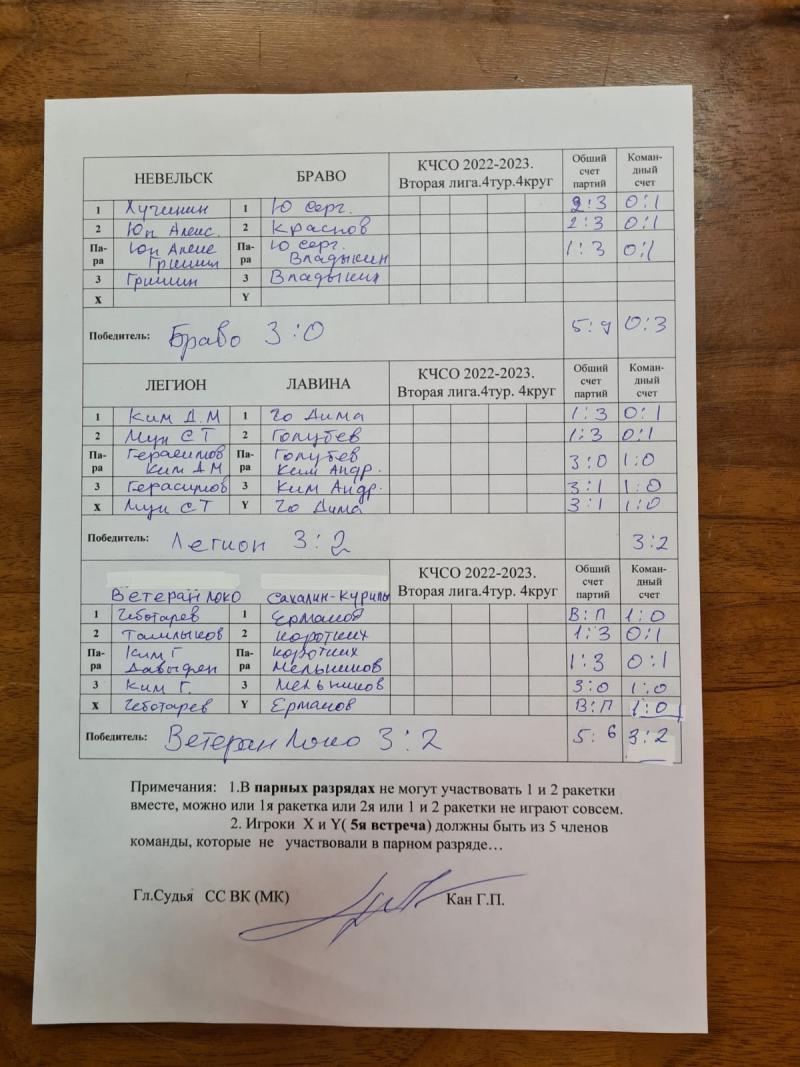 НЕВЕЛЬСК БРАВО КЧСО 2022-2023. Вторая лига.4тур.4круг Общий счет партий Коман-дный счет
1 Хучинин 1 Ю Серг. 2:3 0:1
2 Юн Алекс. 2 Краснов 2:3 0:1
Па-ра Юн Алекс Гришин Па-ра Ю Серг. Владыкин 1:3 0:1
3 Гришин 3 Владыкин
X Y
Победитель: Браво 3:0 5:9 0:3
ЛЕГИОН ЛАВИНА КЧСО 2022-2023. Вторая лига.4тур. 4круг Общий счет партий Коман-дный счет
1 Ким Д.М 1 Чо Дима 1:3 0:1
2 Мун С Т 2 Голубев 1:3 0:1
Па-ра Герасимов Ким Д М Па-ра Голубев Ким Андр. 3:0 1:0
3 Герасимов 3 Ким Андр. 3:1 1:0
X Мун СТ Y Чо Дима 3:1 1:0
Победитель: Легион 3:2 3:2
Ветеран Локо Сахалин-Курилы КЧСО 2022-2023. Вторая лига.4тур. 4круг Общий счет партий Коман-дный счет
1 Чеботарев 1 Ермаков В:П 1:0
2 2 Коротких 1:3 0:1
Па-ра Ким Г Па-ра Коротких Мельников 1:3 0:1
3 Ким Г. 3 Мельников 3:0 1:0
X Чеботарев Y Ермаков В:П 1:0
Победитель: Ветеран Локо 3:2 5:6 3:2
Примечания: 1.В парных разрядах не могут участвовать 1 и 2 ракетки
вместе, можно или 1я ракетка или 2я или 1 и 2 ракетки не играют совсем.
2. Игроки X и Y( 5я встреча) должны быть из 5 членов
команды, которые не участвовали в парном разряде…
Гл.Судья СС ВК (МК) Кан Г.П.